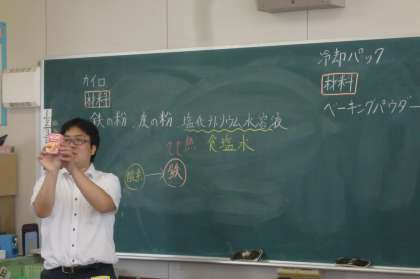 カイロ
材料
鉄の粉、炭の粉、塩化ナトリウム水溶液
食塩水
酸素→鉄
冷却パック
材料
ベーキングパウダー